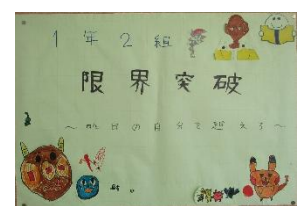 1年2組
限界突破
～昨日の自分を超えろ～